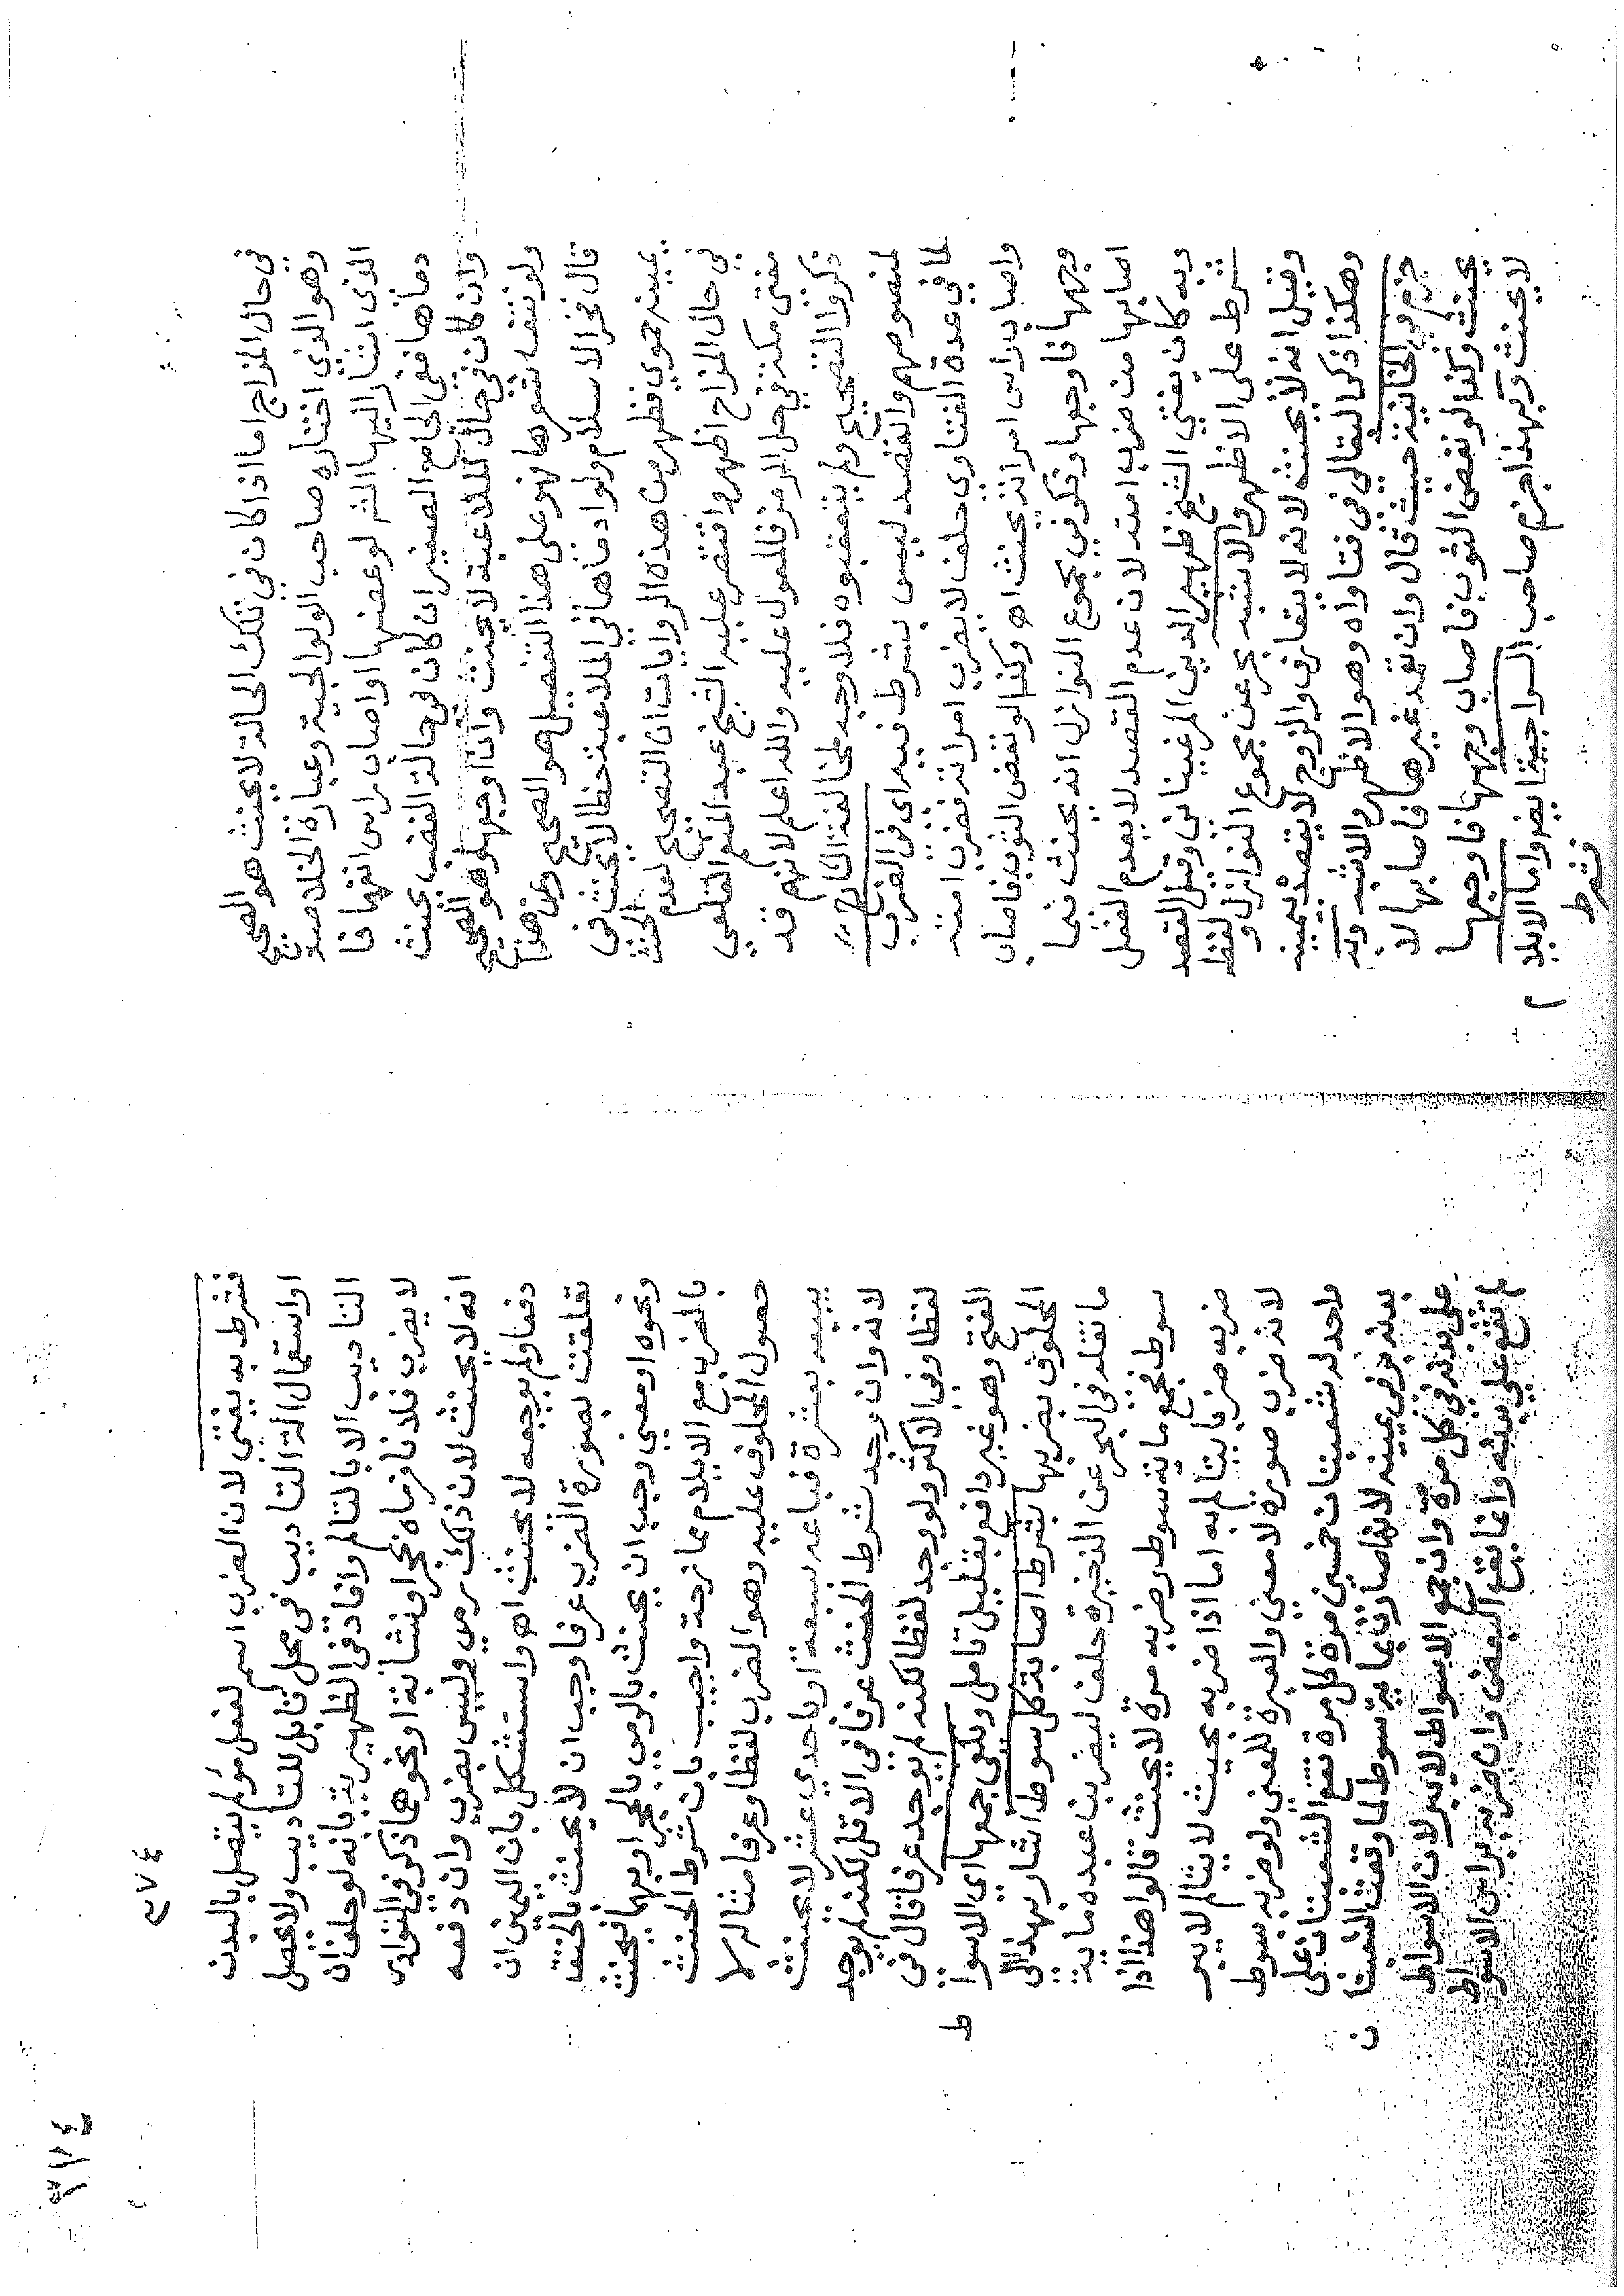 في حال المزاج اما اذا كان في تلك الحالة لا يحنث هو الصحيح
وهو الذي اختاره صاحب الولوالجية وعبارة الخلاصة
الذي اشار اليها الشر لو عضها او اصاب راس انفها فا
دماها ففي الجامع الصغير ان كان في حالة الغضب يحنث
وان كان في حال الملاعبة لا يحنث وان اوجعها هو الصحيح
ولو نتف شعرها فهو على هذا التفصيل هو الصحيح وعن هذا
قال فخر الاسلام ولو ادماها في الملاعبة خطا لا يحنث في
يمينه حموي فظهر من هذه الروايات ان التصحيح لعدم الحنث
في حال المزاح اظهر واقتصر عليه الشيخ عبد المنعم القلعي
مفتي مكة في حل الرمز فالمعول عليه والله اعلم لانهم قد
ذكروا التصحيح ولم يتعقبوه فلا وجه لمخالفة الشارح
لمنصوصهم والقصد ليس بشرط فيه اي في الضرب
لما في عدة الفتاوي حلف لا يضرب امراته فضرب امته
واصاب راس امراته يحنث اه وكذا لو نفض الثوب فاصاب
وجهها فاوجعها وذكر في مجموع النوازل انه يحنث فيما
اصابها من ضرب امته لان عدم القصد لا يعدم الفعل
وبه كان يفتي الشيخ ظهير الدين المرغيناني وقيل القصد
شرط على الاظهر والاشبه بحر عن مجموع النوازل ولفظه
وقيل انه لا يحنث لانه لا يتعارف والزوج لا يقصده بيمينه
وهكذا ذكر البقالي في فتاواه وهو الاظهر والاشبه وبه
جزم في الخانية حيث قال وان تعمد غيرها فاصابها لا
يحنث وكذا لو نفض الثوب فاصاب وجهها فاوجعها
لا يحنث وبهذا جزم صاحب السراجية ايضا واما الايلا
م
فشرط
٣٧٤
٣٧٤
فشرط به يفتي لان الضرب اسم لفعل مؤلم يتصل بالبدن
او استعمال الة التاديب في محل قابل للتاديب ولا يحصل
التاديب الا بالتالم وافاد في الظهيرية بانه لو حلف ان
لا يضرب فلانا فرماه بحجر او نشابة او نحوهما ذكر في النوادر
انه لا يحنث لان ذلك رمي وليس بضرب وان دفعه
دفعا ولم يوجعه لا يحنث اه واستشكل بان اليمين ان
تعلقت بصورة الضرب عرفا وجب ان لا يحنث بالخنق
ونحوه او معني وجب ان يحنث بالرمي بالحجر او بهما فيحنث
بالضرب مع الايلام ممازحة واجيب بان شرط الحنث
حصول المحلوف عليه وهو الضرب لفظا وعرفا مثاله لا
يبيعه بعشرة فباعه بسبعة او باحدي عشر لا يحنث
لانه وان وجد شرط الحنث عرفا في الاقل لكنه لم يوجد
لفظا وفي الاكثر ولو وجد لفظا لكنه لم يوجد عرفا قال في
الفتح وهو غير دافع بقليل تامل ويكفي جمعها اي الاسوا
ط
المحلوف بضربها بشرط اصابة كل سوط اشار بهذا الي
ما نقله في البحر عن الذخيرة حلف ليضربن عبده ماية
سوط فجمع ماية سوط وضربه مرة لا يحنث قالوا هذا اذا
ضربه ضربا يتالم به اما اذا ضربه بحيث لا يتالم لا يبر
لانه ضرب صورة لا معني والعبرة للمعني ولو ضربه بسوط
واحد له شعبتان خمسين مرة كل مرة تقع الشعبتان على
بدنه بر في يمينه لانها صارت ماية سوط لما وقعت الشعبتا
ن
على بدنه في كل مرة وان جمع الاسواط لا يبر لان الاسواط
لم تقع على بدنه وانما يقع البعض وان ضربه براس الاسواط